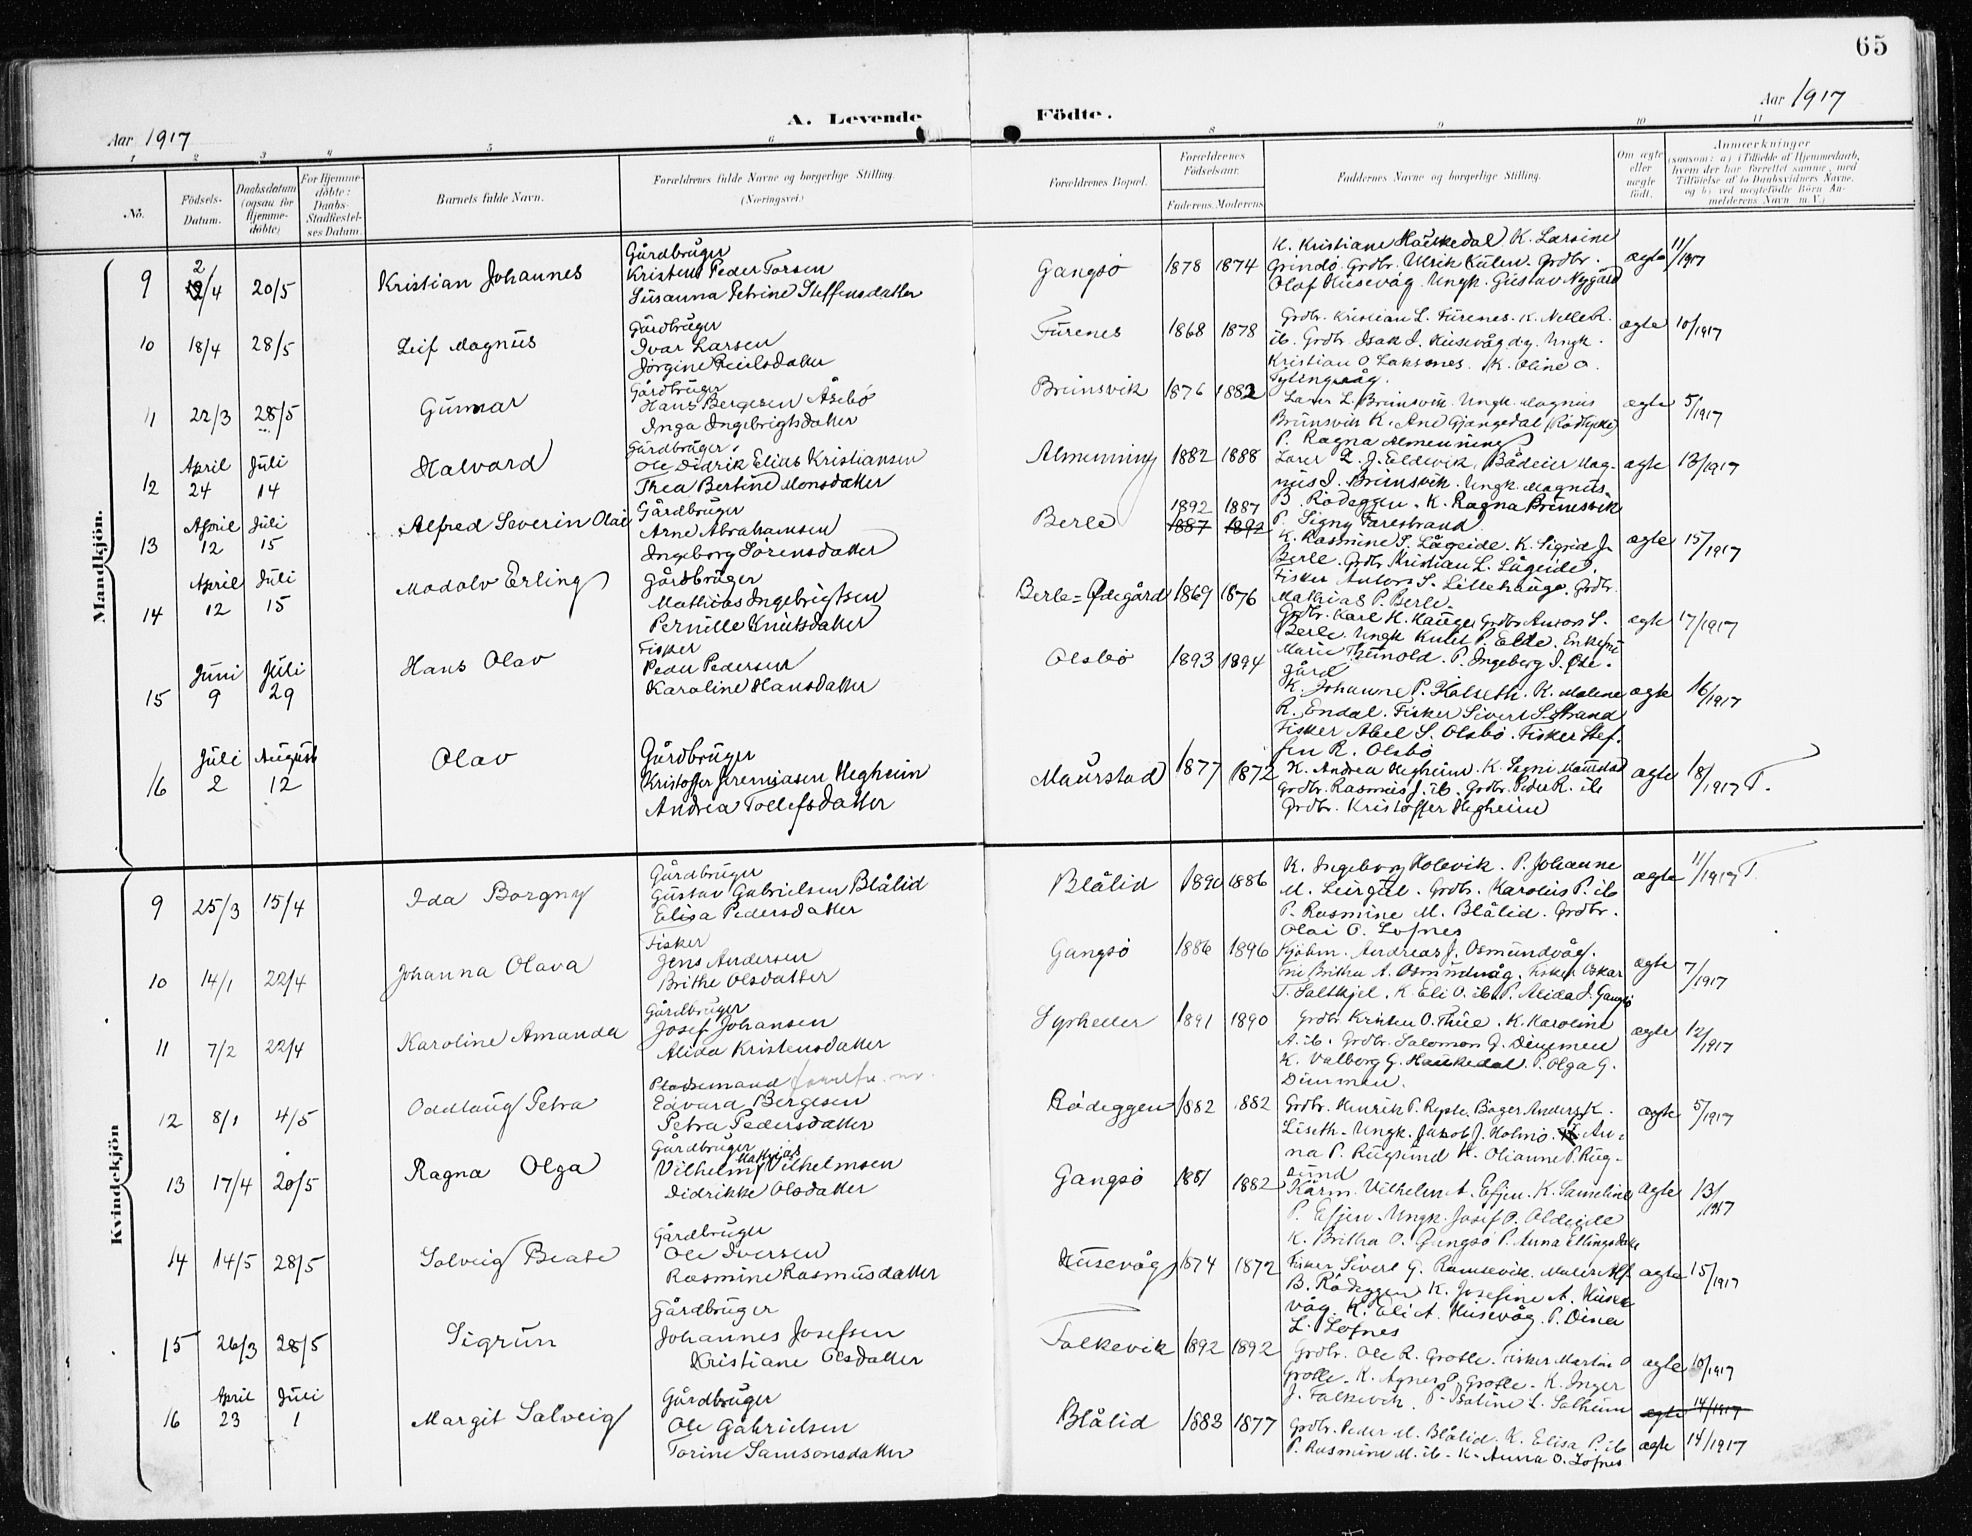 65
Aar 1917
A. Levende
Födte.
Aar 1917
1 2 3 4 5 6 8 9 10 11
No.
Födsels-Datum.
Daabsdatum (ogsaa for Hjemme-döbte)
For Hjemme-döbte: Daabs-Stadfæstel-ses Datum.
Barnets fulde Navn.
Forældrenes fulde Navne og borgerlige Stilling. (Næringsvei.)
Forældrenes Bopæl.
Forældrenes Födselsaar.
Faderens. Moderens.
Faddernes Navne og borgerlige Stilling.
Om ægte eller uægte födt.
Anmærkninger
(saasom: a) i Tilfælde af Hjemmedaab,
hvem der har forrettet samme, med
Tilföielse af to Daabsvidners Navne.
og b) ved uægtefödte Börn An-
melderens Navn m. V.)
Mandkjön.
9 2/4 20/5 Kristian Johannes
Gårdbruger
Kristen Peder Torsen
Susanna Petrine Steffensdatter
Gangsö 1878 1874
K. Kristiane Haukedal K. Larsine
Grindö. Grdbr. Ulrik Kulen. Grdbr.
Olaf Husevåg. Ungk. Gustav Nygård
ægte 11/1917
10 18/4 28/5 Leif Magnus
Gårdbruger
Ivar Larsen
Jörgine
Furenes 1868 1878
Grdbr. Kristian L. Furenes. K. Nelle R.
ib. Grdbr. Isak I. Husevåg. Ungk.
Kristian O. K. Oline O.
ægte 10/1917
11 22/3 28/5 Gunnar
Gårdbruger
Hans Bergesen Åsebö
Inga Ingebrigtsdatter
Brunsvik 1876 1882
Lærer L. Brunsvik. Ungk. Magnus
Brunsvik K. Ane Gjengedal
P. Ragna Almenning
ægte 5/1917
12 April 24 Juli 14 Halvard
Gårdbruger.
Ole Didrik Elias Kristiansen
Thea Bertine Monsdatter
Almenning 1882 1888
Lærer L. J. Eldevik. Mag-
nus J. Brunsvik. Ungk. Magnus
B. Rödeggen. K. Ragna Brunsvik
P. Signy Farestrand
ægte 13/1917
13 April 12 Juli 15 Alfred Severin Olai
Gårdbruger
Arne Abrahamsen
Ingeborg Sörensdatter
Berle 1892 1887
1887 1892
K. Rasmine S. Lågeide. K. Sigrid J.
Berle. Grdbr. Kristian L. Lågeide.
Fisker Antors S. Littlehauge. Grdbr.
Mathias P. Berle.
ægte 15/1917
14 April 12 Juli 15 Modolv Erling
Gårdbruger
Mathias Ingebrigtsen
Pernille Knutsdatter
Berle=Ødegård 1869 1876
Grdbr. Karl H. Hauge. Grdbr. Antors S.
Berle. Ungk. Knut P. Elde. Enke
Marie P. Ingeborg J. Øde-
gård
ægte 17/1917
15 Juni 9 Juli 29 Hans Olav
Fisker
Peder Pedersen
Karoline Hansdatter
Olsbö 1893 1894
K. Johanne P. Kolseth. K. Malene
R. Endal. Fisker Sivert S. Strand
Fisker Abel S. Olsbö. Fisker Stef-
fen R. Olsbö
ægte 16/1917
16 Juli 2 August 12 Olav
Gårdbruger
Kristoffer Jeremiasen Hegheim
Andrea Tollefsdatter
Maurstad 1877 1872
K. Andrea Hegheim. K. Sagni Maurstad
Grdbr. Rasmus J. ib. Grdbr. Peder R. ib
Grdbr. Kristoffer Hegheim
ægte 18/1917 T.
Kvindekjön
9 25/3 15/4 Ida Borgny
Gårdbruger
Gustav Gabrielsen Blålid
Elisa Pedersdatter
Blålid 1890 1886
K. Ingeborg Holevik. P. Johanne
M. Leirgul. Grdbr. Karolus P. ib
P. Rasmine M. Blålid. Grdbr.
Olai O. Lofnes
ægte 11/1917 T.
10 14/1 22/4 Johanna Olava
Fisker
Jens Andersen
Brithe Olsdatter
Gangsö 1886 1896
Kjöbm. Andreas J. Osmundvåg.
Fru Britha A. Osmundvåg. Fisker Oskar
T. Saltkjel. K. Eli O. ib. P. Alida J. Gangsö
ægte 7/1917
11 7/2 22/4 Karoline Amanda
Gårdbruger
Josef Johansen
Alida Kristensdatter
Lyrheller 1891 1890
Grdbr. Kristen O. Thue. K. Karoline
A. ib. Grdbr. Salomon J. Dimmen
K. Valborg G. Haukedal. P. Olga G.
Dimmen.
ægte 12/1917
12 8/1 4/5 Oddlaug Petra
Pladsemand
Edvard Bergesen
Petra Pedersdatter
Rödeggen 1882 1882
Grdbr. Henrik P. Bager Anders K.
Liseth. Ungk. Jakob J. Holmö. An-
na P. Rugsund K. Olianne P. Rug-
sund
ægte 5/1917
13 17/4 20/5 Ragna Olga
Gårdbruger
Vilhelm Mathias Vilhelmsen
Didrikke Olsdatter
Gangsö 1881 1882
Kårm. Vilhelm A. Efjen. K. Sameline
P. Efjen. Ungk. Josef P. Aldeide
K. Britha O. Gangsö P. Anna Ellingsdatter
ægte 13/1917
14 14/5 28/5 Solveig Beate
Gårdbruger
Ole Iversen
Rasmine Rasmusdatter
Husevåg 1874 1872
Fisker Sivert G. Ramsevik. Maler Alf
B. Rödeggen K. Josefine A. Huse-
våg. K. Eli A. Husevåg. P. Dina
L. Lofnes
ægte 15/1917
15 26/3 28/5 Sigrun
Gårdbruger
Johannes Josefsen
Kristiane Olsdatter
Falkevik 1892 1892
Grdbr. Ole R. Grotle. Fisker Martin O
Grotle. K. Agnes O. Grotle. K. Inger
J. Falkevik. P. L. Solheim
ægte 10/1917
16 April 23 Juli 1 Margit Solveig
Gårdbruger
Ole Gabrielsen
Torine Samsonsdatter
Blålid 1883 1877
Grdbr. Peder M. Blålid. K. Elisa P. ib
P. Rasmine M. ib. K. Anna O. Lofnes
ægte 14/1917
ægte 14/1917